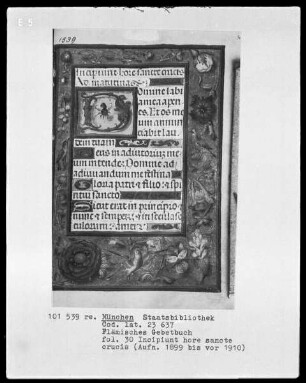 1539
Incipiunt hore sancte crucis
Ad matutinas
Domine labi
mea aperi
es. Et os me
um annun
ciabit lau
dem tuam
Deus in adiutorium me
um intende. Domine ad
adiuvandum me festina
Gloria patri et filio et spi
ritui sancto
Sicut erat in principio
et nunc et semper et in secula se
culorum. Amen
101 539 re. München Staatsbibliothek
Cod. lat. 23 637
Flämisches Gebetbuch
fol. 30 Incipiunt hore sancte
crucis (Aufn. 1899 bis vor 1910)